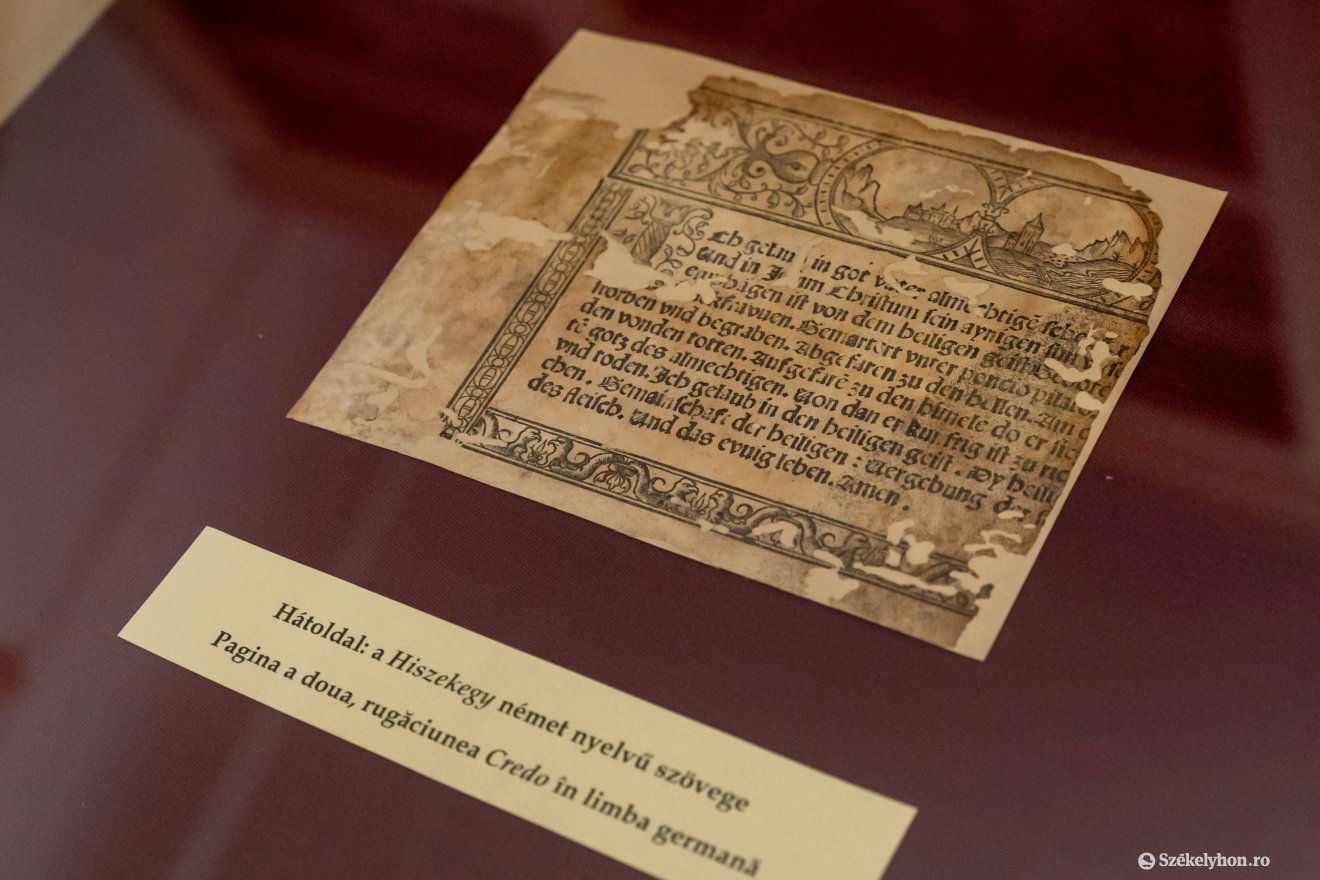 Ich gelau in got vater almechtigē
und in Christum sein aynigen
ist von dem heiligen geist
Gemartert vnter poncio pilato
storben vnd begraben. Abgefaren zu den hellen. Am
den vonden totten. Aufgefarē zu den himele do er
tē gotz des almechtigen. Von dan er ist zu
vnd toden. Ich gelaub in den heiligen geist. Dy
chen. Gemainschaft der heiligen: Vergebung
des fleisch. Und das ewig leben. Amen.
Hátoldal: a Hiszekegy német nyelvű szövege
Pagina a doua, rugăciunea Credo în limba germană
Székelyhon.ro